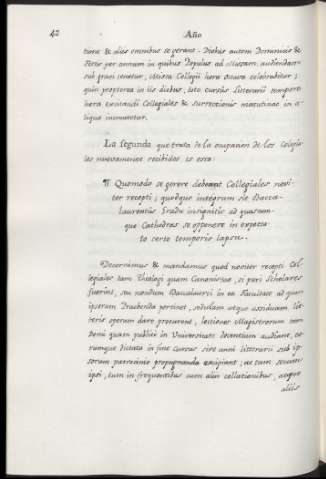 42
Año
tiora & dies omnibus se gerant. Diebus autem Dominicis &
Festis per annum in quibus Populus ad Missam audiendam
sub gravi tenetur, Missa Collegii hora octava celebrabitur;
quin propterea in iis diebus, toto cursûs litterarii tempore
hora tentandi Collegiales & surrectionis matutinae in a-
liquo immutetur.
La segunda que trata de la ocupacion de los Colegia-
les nuevamente recibidos es esta:
¶ Quomodo se gerere debeant Collegiales novi-
ter recepti; quodque integrum sit Bacca-
laureatûs Gradu insignitis ad quascum-
que Cathedras se opponere in expecta-
to certo temporis lapsu.
Decernimus & mandamus quod noviter recepti Col-
legiales tam Theologi quam Canonistae, si puri Scholares
fuerint, seu nondum Baccalaurei in ea Facultate ad quam
ipsorum Praebenda pertinet, sedulam atque assiduam lit-
teris operam dare procurent, lectiones Magistrorum tam
Domi quam publicè in Universitate docentium audiant, eo-
rumque dictata in fine cursus sive anni litterarii sub ip-
sorum patrocinio propugnanda excipiant; ac tam seorsim
ipsi, tum in frequentibus cum aliis collationibus, atque
aliis